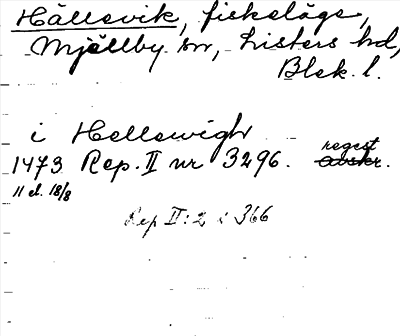 Hällevik, fiskeläge,
Mjällby sn, Listers hd,
Blek. l.
i Hellewigh
1473 Rep. II nr 3296. regest avskr.
11 el. 18/8
Rep II:2 s 366